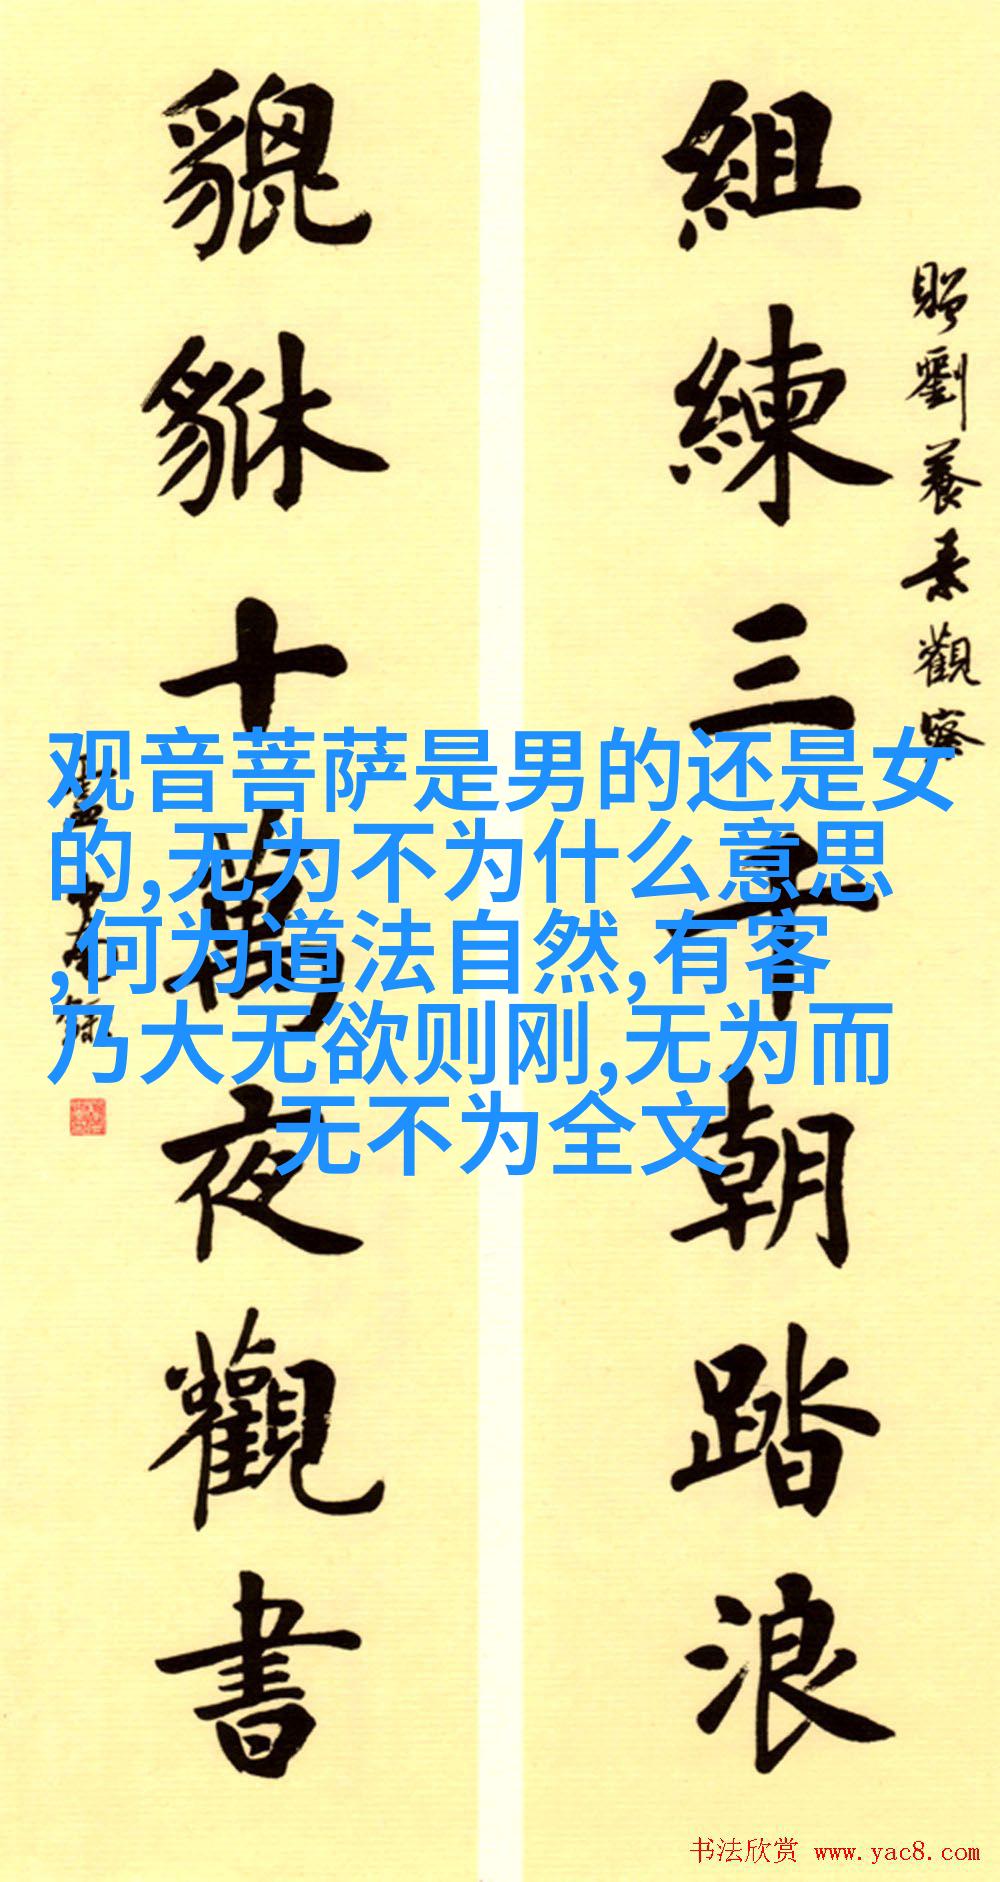 組練三千朝踏浪
貔貅十萬夜觀書
贈劉養素觀察
观音菩萨是男的还是女
的,无为不为什么意思
,何为道法自然,有客
乃大无欲则刚,无为而
无不为全文
书法欣赏 www.yac8.com